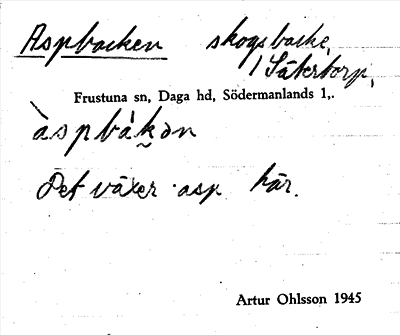 Aspbacken skogsbacke,
i Sätertorp,
Frustuna sn, Daga hd, Södermanlands l,.
àspbákən
Det växer asp här.
Artur Ohlsson 1945